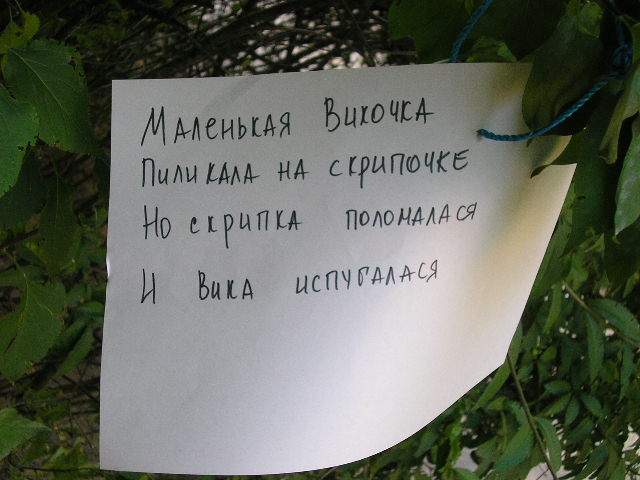 Маленькая Викочка
Пиликала на скрипочке
Но скрипка поломалася
И Вика испугалася